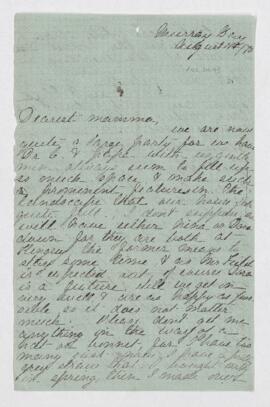 Murray Bay
August
Dearest mamma,
we are now
quite a large party for we have
Dr C. & papa with us gentle
men always seem to fill up
so much space & make such
prominent features in the
landscape that our house is
quite full. I don't suppose
will have either Nina or
down for they are both at
& the former means to
stay some time & as Mr
is expected out, of course
is a fixture still we get on
very well & are as happy as
so it does not matter
much. Please don't get me
anything in the way of a
hat or bonnet, for I have too
many just now, I have a
grey straw that I bought
in spring, then I made over